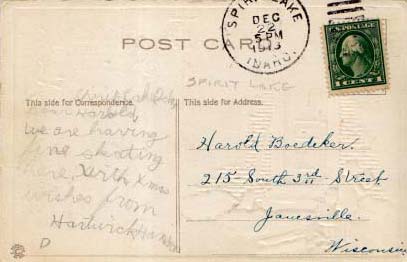 SPIRIT LAKE
DEC
22
5 PM
1913
IDAHO.
POST CARD
1 CENT 1
SPIRIT LAKE
This side for Correspondence.
This side for Address.
Spirit Lake
Dear Harold
we are having
fine skating
here, With Xmas
wishes from
Hartwick
D
Harold Boedeker.
215 South 3rd Street
Janesville.
Wisconsin